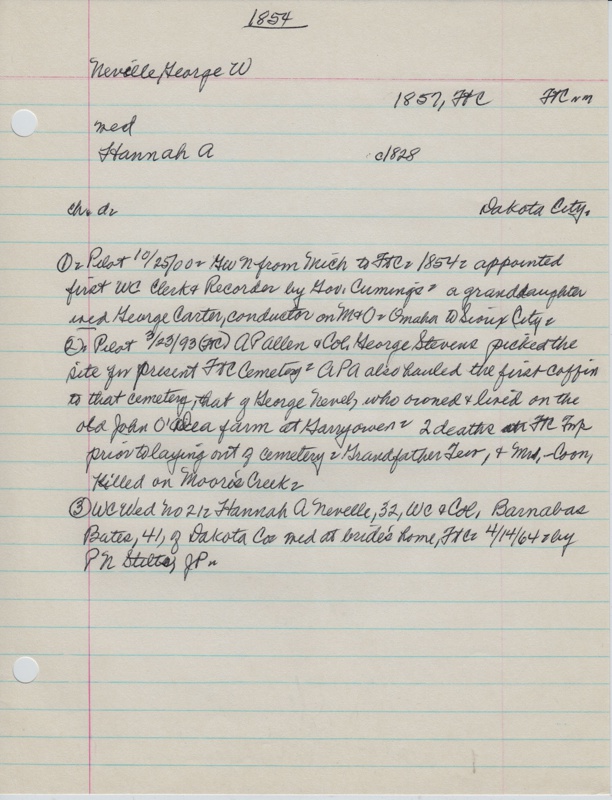 1854
Neville, George W
1857, FtC FtC nm
med
Hannah A c1828
ch. d. Dakota City.
① Pilot 10/25/00 = GWN from Mich to FtC = 1854 = appointed
first WC Clerk & Recorder by Gov. Cumings = a granddaughter
med George Carter, conductor on M&O = Omaha to Sioux City =
② Pilot 3/23/93 (FtC) A P Allen & Col. George Stevens picked the
site for present FtC Cemetery = APA also hauled the first coffin
to that cemetery, that of George Nevel, who owned & lived on the
old John O'Dea farm at Garryowen = 2 deaths at FtC Twp
prior to laying out of cemetery = Grandfather & Mrs. Coon,
killed on Moore's Creek =
③ WC Wed No 21 = Hannah A Nevelle, 32, WC & Col. Barnabas
Bates, 41, of Dakota Co = med at bride's home, FtC = 4/14/64 = by
P N JP =